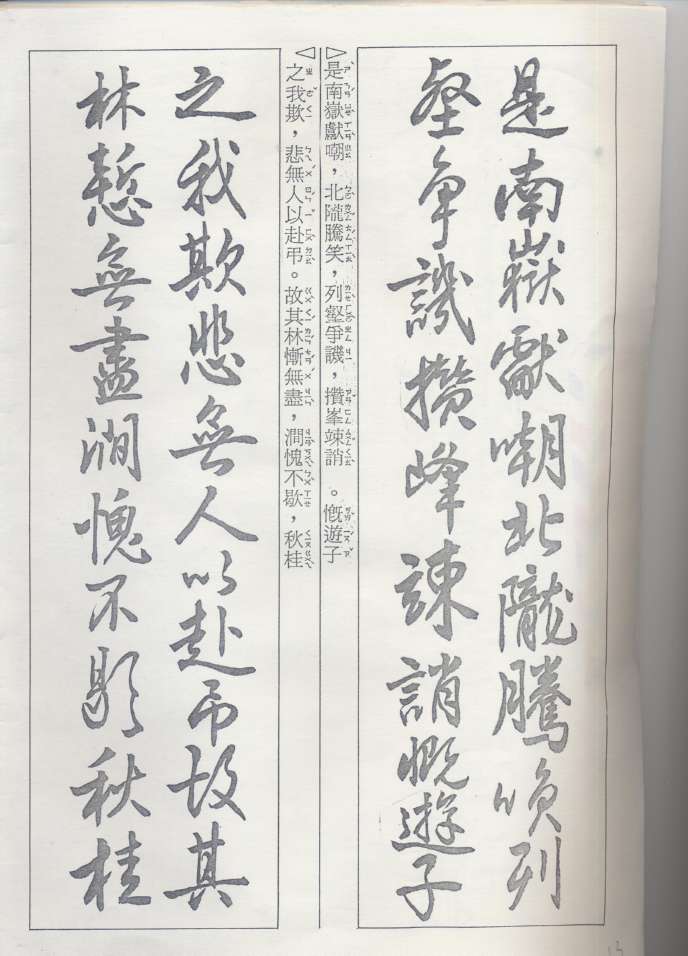 是南嶽獻嘲北隴騰笑列
壑争譏攢峰竦誚慨遊子
▷是南嶽獻嘲，北隴騰笑，列壑爭譏，攢峯竦誚。慨遊子
◁之我欺，悲無人以赴弔。故其林慚無盡，澗愧不歇，秋桂
之我欺悲無人以赴吊故其
林慙無盡澗愧不歇秋桂